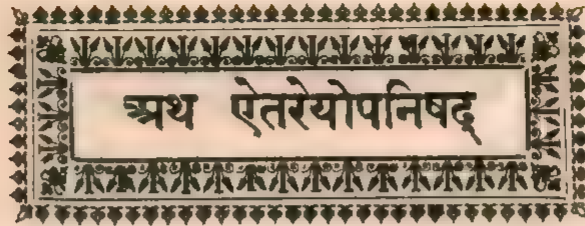 अथ ऐतरेयोपनिषद्